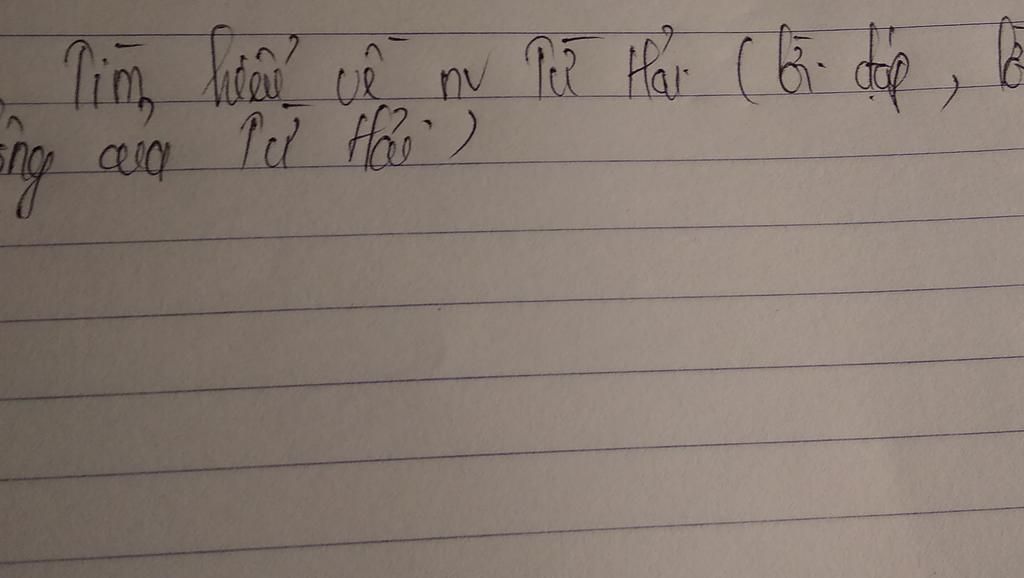 Tìm hiểu về nv Từ Hải (lời đáp,
ông của Từ Hải)